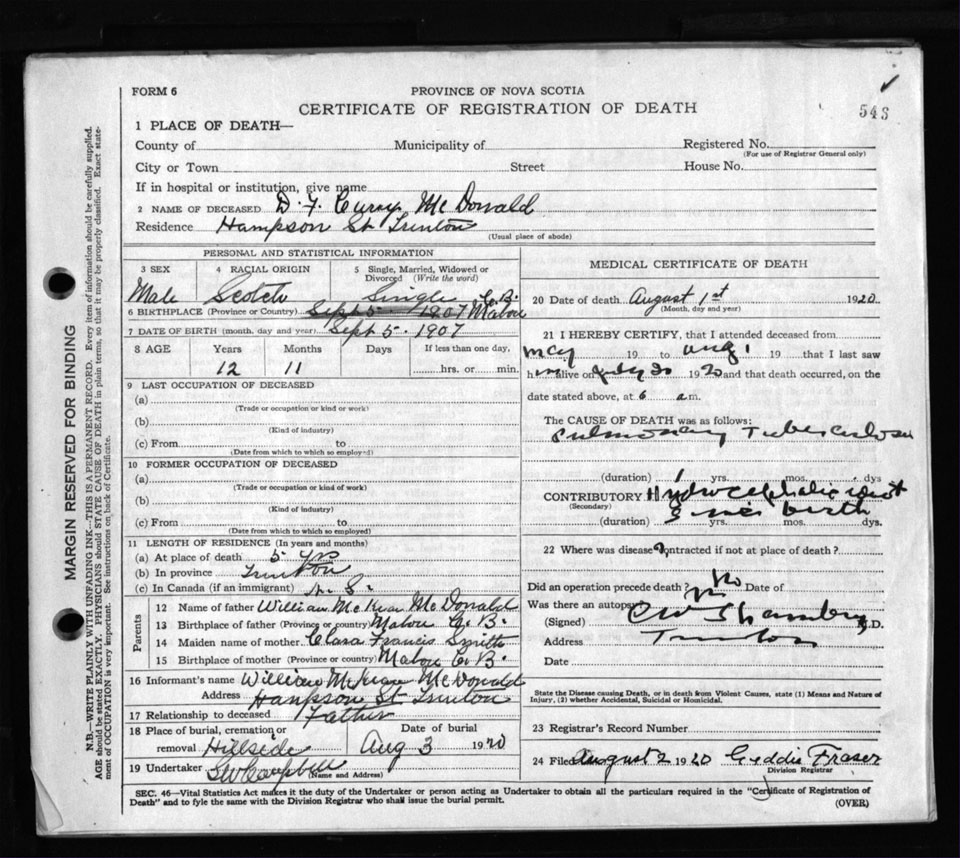 FORM 6
PROVINCE OF NOVA SCOTIA
CERTIFICATE OF REGISTRATION OF DEATH
543
1 PLACE OF DEATH—
County of Municipality of Registered No.
(For use of Registrar General only)
City or Town Street House No.
If in hospital or institution, give name
2 NAME OF DECEASED D. F. Curry McDonald
Residence Hampson St Trenton
(Usual place of abode)
PERSONAL AND STATISTICAL INFORMATION
3 SEX 4 RACIAL ORIGIN 5 Single, Married, Widowed or Divorced (Write the word)
Male Scotch Single
6 BIRTHPLACE (Province or Country) Sept 5 1907 Mabou C.B.
7 DATE OF BIRTH (month, day and year) Sept 5. 1907
8 AGE Years Months Days If less than one day,
12 11 hrs. or min.
9 LAST OCCUPATION OF DECEASED
(a)
(Trade or occupation or kind or work)
(b)
(Kind of industry)
(c) From to
(Date from which to which so employed)
10 FORMER OCCUPATION OF DECEASED
(a)
(Trade or occupation or kind of work)
(b)
(Kind of industry)
(c) From to
(Date from which to which so employed)
11 LENGTH OF RESIDENCE (In years and months)
(a) At place of death 5 yrs
(b) In province Trenton
(c) In Canada (if an immigrant) N. S.
Parents
12 Name of father William McDonald
13 Birthplace of father (Province or country) Mabou C. B.
14 Maiden name of mother Clara Francis Smith
15 Birthplace of mother (Province or country) Mabou C. B.
16 Informant's name William McDonald
Address Hampson St Trenton
17 Relationship to deceased Father
18 Place of burial, cremation or removal Hillside Date of burial Aug 3 1920
19 Undertaker Campbell
(Name and Address)
MEDICAL CERTIFICATE OF DEATH
20 Date of death August 1st 1920
(Month, day and year)
21 I HEREBY CERTIFY, that I attended deceased from
May 19 to Aug 1 19 that I last saw
him alive on July 30 1920 and that death occurred, on the
date stated above, at 6 a.m.
The CAUSE OF DEATH was as follows:
Pulmonary Tuberculosis
(duration) 1 yrs. mos. dys
CONTRIBUTORY Hydrocephalic idiot
(Secondary)
(duration) since birth yrs. mos. dys.
22 Where was disease contracted if not at place of death?
Did an operation precede death? No Date of
Was there an autopsy
(Signed) M.D.
Address Trenton
Date
State the Disease causing Death, or in death from Violent Causes, state (1) Means and Nature of Injury, (2) whether Accidental, Suicidal or Homicidal.
23 Registrar's Record Number
24 Filed August 2 1920 Geddie Fraser
Division Registrar
SEC. 46—Vital Statistics Act makes it the duty of the Undertaker or person acting as Undertaker to obtain all the particulars required in the "Certificate of Registration of
Death" and to fyle the same with the Division Registrar who shall issue the burial permit.
(OVER)
MARGIN RESERVED FOR BINDING
N.B.—WRITE PLAINLY WITH UNFADING INK—THIS IS A PERMANENT RECORD. Every item of information should be carefully supplied.
AGE should be stated EXACTLY. PHYSICIANS should STATE CAUSE OF DEATH in plain terms, so that it may be properly classified. Exact state-
ment of OCCUPATION is very important. See instructions on back of Certificate.